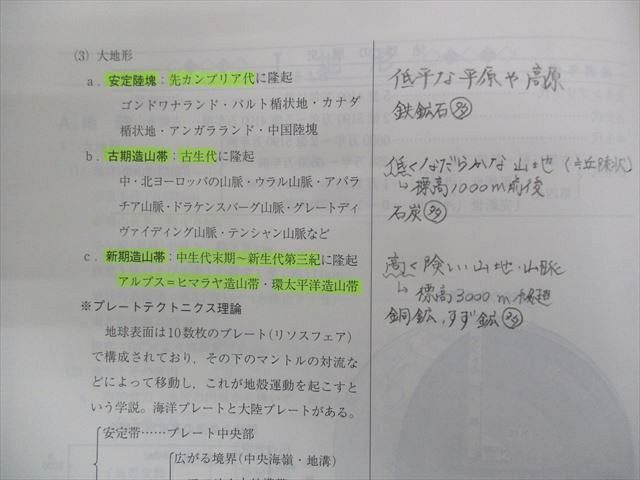 (3) 大地形
a．安定陸塊：先カンブリア代に隆起
ゴンドワナランド・バルト楯状地・カナダ
楯状地・アンガラランド・中国陸塊
b．古期造山帯：古生代に隆起
中・北ヨーロッパの山脈・ウラル山脈・アパラ
チア山脈・ドラケンスバーグ山脈・グレートディ
ヴァイディング山脈・テンシャン山脈など
c．新期造山帯：中生代末期～新生代第三紀に隆起
アルプス＝ヒマラヤ造山帯・環太平洋造山帯
※プレートテクトニクス理論
地球表面は10数枚のプレート(リソスフェア)
で構成されており，その下のマントルの対流な
どによって移動し，これが地殻運動を起こすと
いう学説。海洋プレートと大陸プレートがある。
安定帯……プレート中央部
広がる境界(中央海嶺・地溝)
低平な平原や高原
鉄鉱石 多
低くなだらかな山地
↳標高1000m前後
石炭 多
高く険しい山地・山脈
↳標高3000m
銅鉱，すず鉱 多